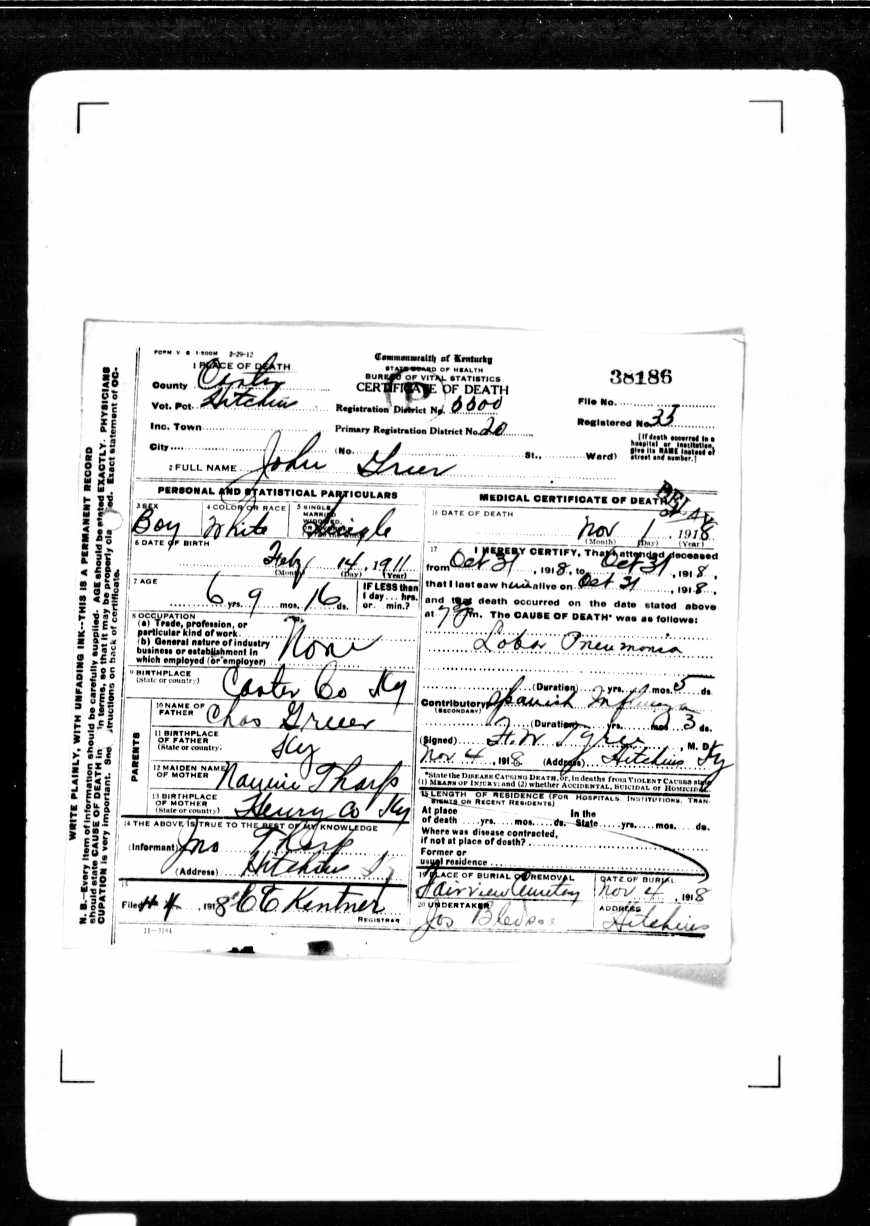 FORM V S 1-500M 2-29-12
Commonwealth of Kentucky
STATE BOARD OF HEALTH
BUREAU OF VITAL STATISTICS
CERTIFICATE OF DEATH
38186
1 PLACE OF DEATH
County Carter
Vot. Pct. Hitchins
Inc. Town
City
Registration District No.
Primary Registration District No. 20
File No.
Registered No. 33
(No. St., Ward)
[If death occurred in a hospital or institution, give its NAME instead of street and number.]
2 FULL NAME John Greer
PERSONAL AND STATISTICAL PARTICULARS
3 SEX Boy
4 COLOR OR RACE White
5 SINGLE, MARRIED, WIDOWED, Single
6 DATE OF BIRTH
Feby 14, 1911
(Month) (Day) (Year)
7 AGE
6 yrs. 9 mos. 16 ds.
IF LESS than 1 day... hrs. or... min.?
8 OCCUPATION
(a) Trade, profession, or particular kind of work
(b) General nature of industry business or establishment in which employed (or employer)
None
9 BIRTHPLACE
(State or country)
Carter Co Ky
PARENTS
10 NAME OF FATHER Chas Greer
11 BIRTHPLACE OF FATHER
(State or country)
Ky
12 MAIDEN NAME OF MOTHER Tharp
13 BIRTHPLACE OF MOTHER
(State or country)
Henry Co Ky
14 THE ABOVE IS TRUE TO THE BEST OF MY KNOWLEDGE
(Informant) Jno Tharp
(Address) Hitchins Ky
15
Filed 4, 1918 Kentner
REGISTRAR
11-3184
MEDICAL CERTIFICATE OF DEATH
16 DATE OF DEATH
Nov 1, 1918
(Month) (Day) (Year)
17 I HEREBY CERTIFY, That I attended deceased
from Oct 31, 1918, to Oct 31, 1918,
that I last saw him alive on Oct 31, 1918,
and that death occurred on the date stated above
at 7 m. The CAUSE OF DEATH* was as follows:
Lobar Pneumonia
(Duration) yrs. mos. 5 ds.
Contributory Spanish Influenza
(SECONDARY)
(Duration) yrs. mos. 3 ds.
(Signed) M. D.
Nov 4, 1918 (Address) Hitchins Ky
*State the DISEASE CAUSING DEATH, or, in deaths from VIOLENT CAUSES state
(1) MEANS OF INJURY; and (2) whether ACCIDENTAL, SUICIDAL or HOMICIDAL.
18 LENGTH OF RESIDENCE (FOR HOSPITALS, INSTITUTIONS, TRANSIENTS OR RECENT RESIDENTS)
At place of death yrs. mos. ds. In the State yrs. mos. ds.
Where was disease contracted,
if not at place of death?
Former or
usual residence
19 PLACE OF BURIAL OR REMOVAL
Fairview Cemetery
DATE OF BURIAL
Nov 4, 1918
20 UNDERTAKER
Jos Bledsoe
ADDRESS
Hitchins
WRITE PLAINLY, WITH UNFADING INK--THIS IS A PERMANENT RECORD
N. B.--Every item of information should be carefully supplied. AGE should be stated EXACTLY. PHYSICIANS
should state CAUSE OF DEATH in terms, so that it may be properly. Exact statement of OC-
CUPATION is very important. See on back of certificate.